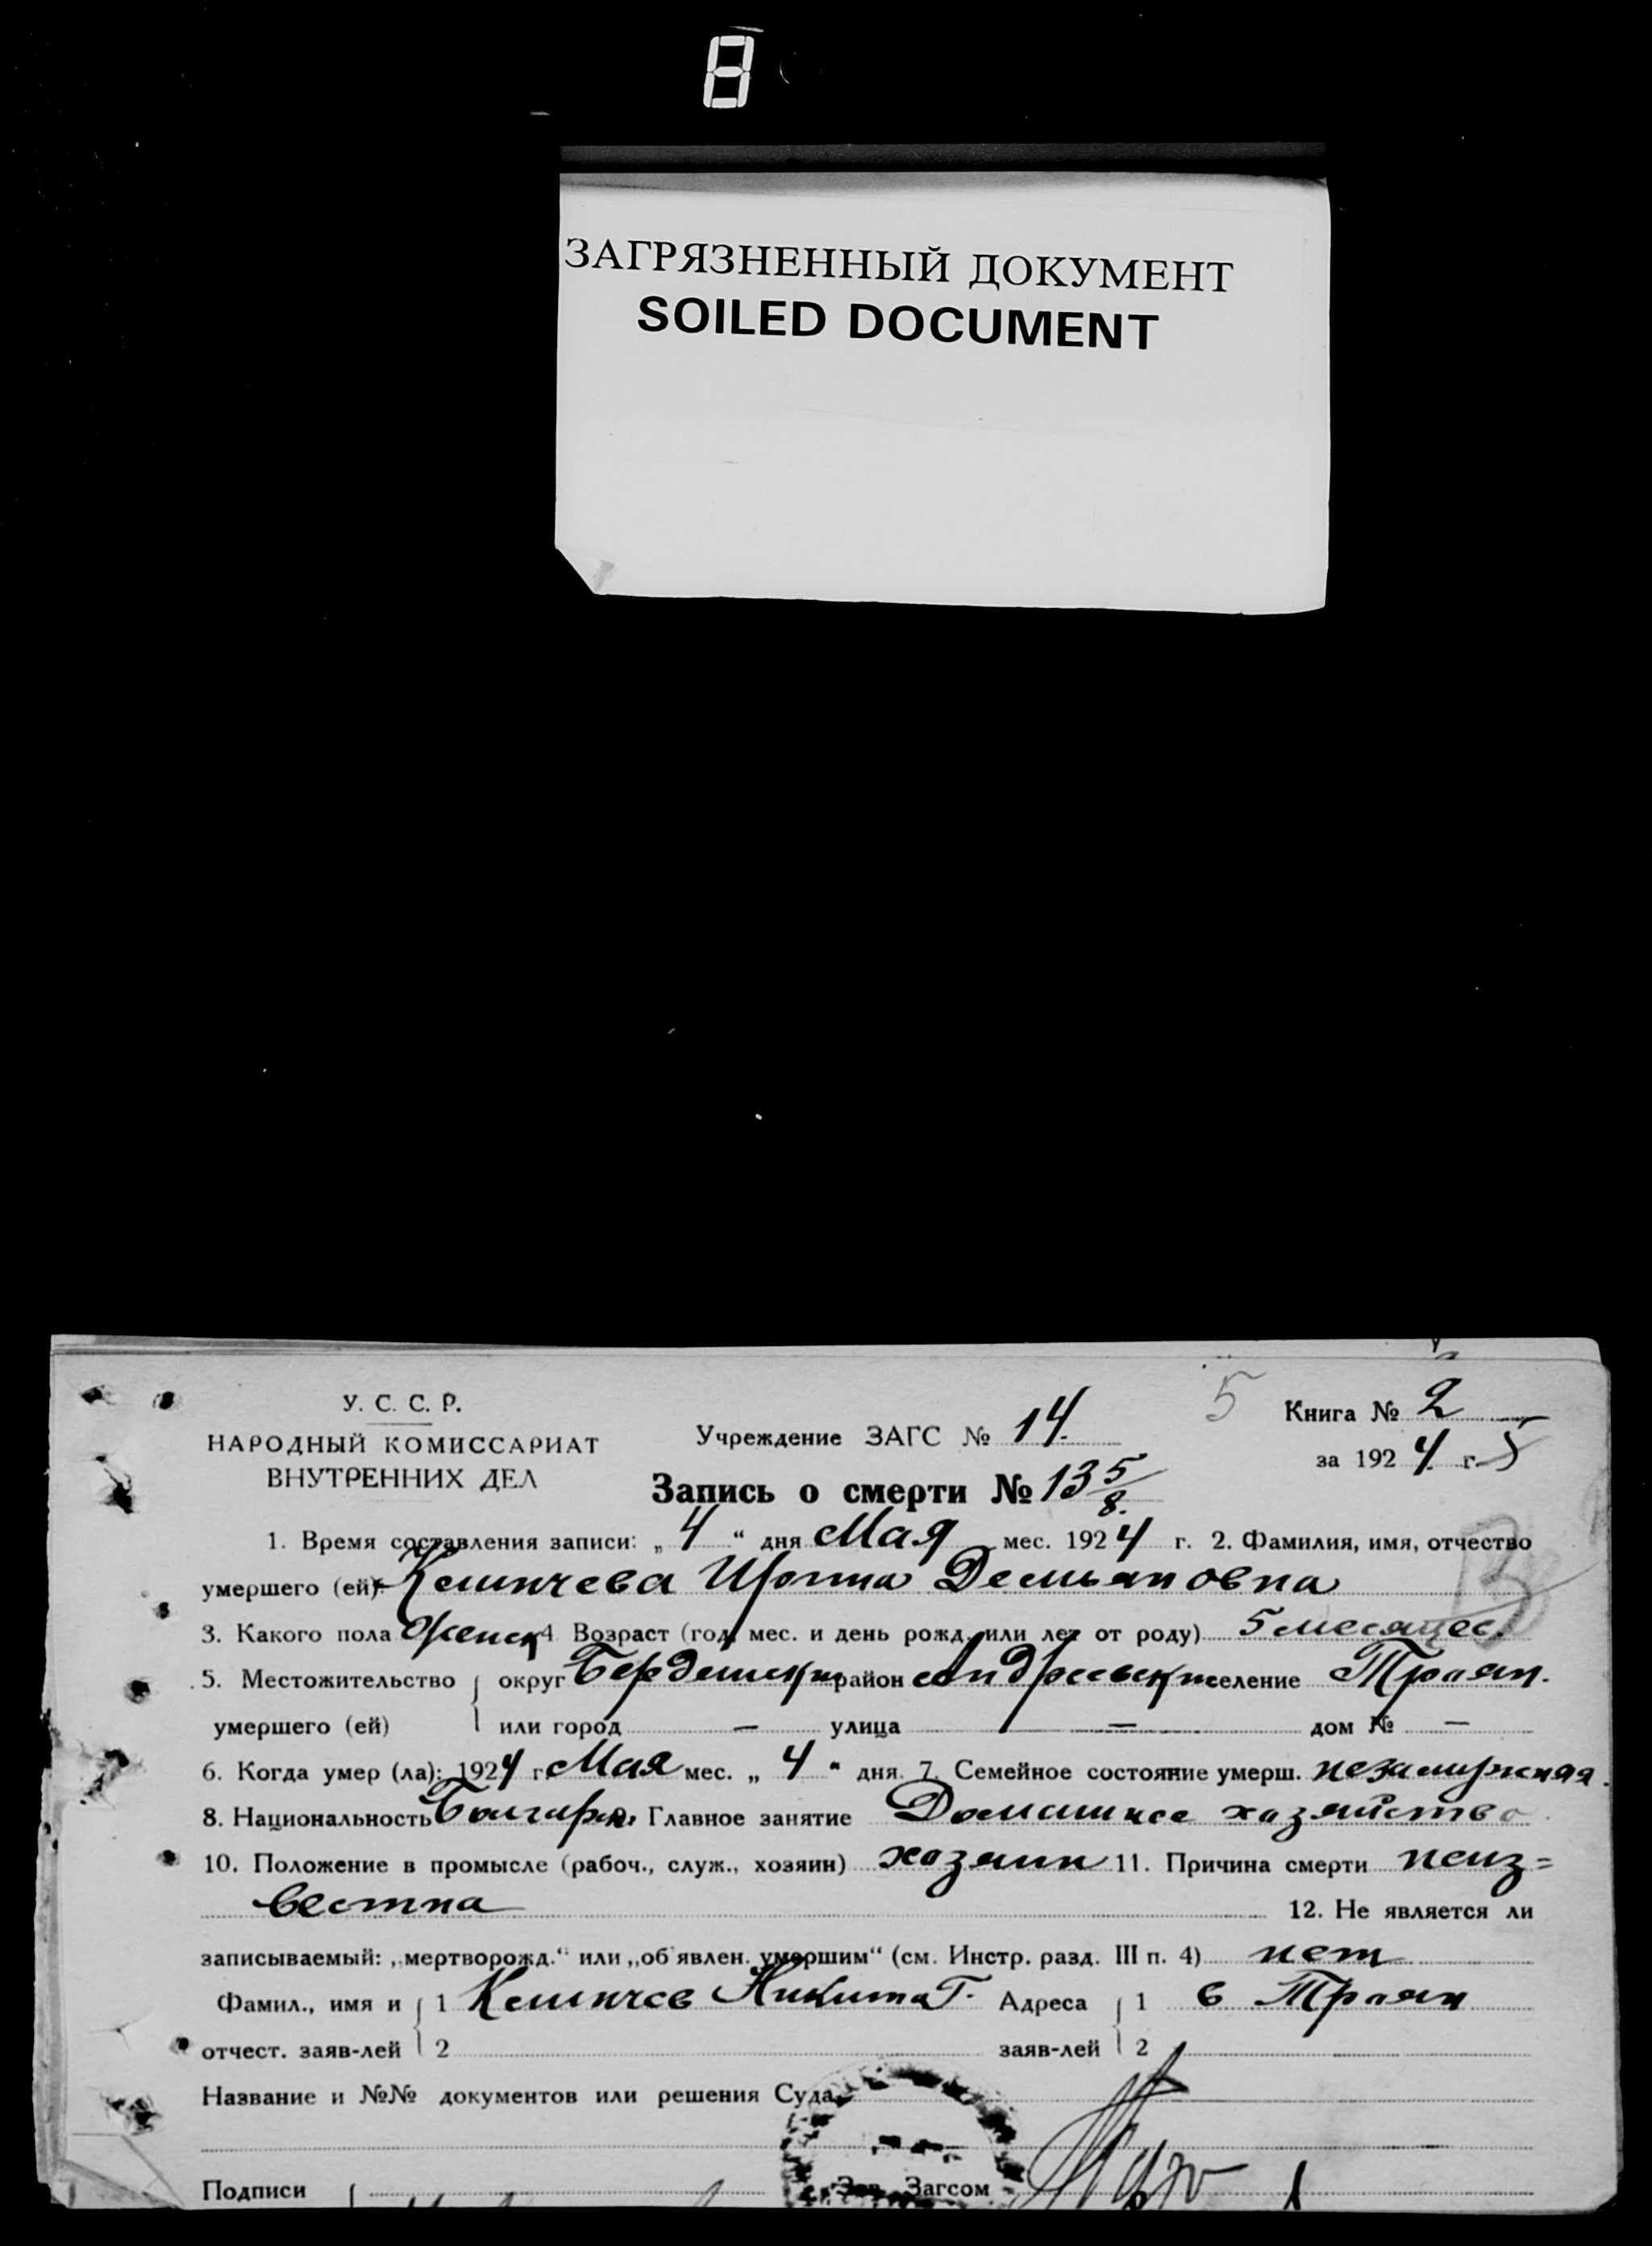 8
ЗАГРЯЗНЕННЫЙ ДОКУМЕНТ
SOILED DOCUMENT
У. С. С. Р.
НАРОДНЫЙ КОМИССАРИАТ
ВНУТРЕННИХ ДЕЛ
Учреждение ЗАГС № 14.
5 Книга № 2
за 1924 г. 5
Запись о смерти № 13 5/8.
1. Время составления записи: „ 4 “ дня Мая мес. 1924 г. 2. Фамилия, имя, отчество
умершего (ей) Демьяновна
3. Какого пола Женск 4 Возраст (год, мес. и день рожд. или лет от роду) 5 месяцев.
5. Местожительство округ Бердянск район Андреевск селение Троян.
умершего (ей) или город — улица — дом № —
6. Когда умер (ла): 1924 г. Мая мес. „ 4 “ дня. 7. Семейное состояние умерш. незамужняя.
8. Национальность Болгарк. Главное занятие Домашнее хозяйство
10. Положение в промысле (рабоч., служ., хозяин) хозяин 11. Причина смерти неиз=
вестна 12. Не является ли
записываемый: „мертворожд.“ или „об'явлен. умершим“ (см. Инстр. разд. III п. 4) нет
Фамил., имя и 1 Никита Г. Адреса 1 с Троян
отчест. заяв-лей 2 заяв-лей 2
Название и №№ документов или решения Суда
Подписи Зав. Загсом